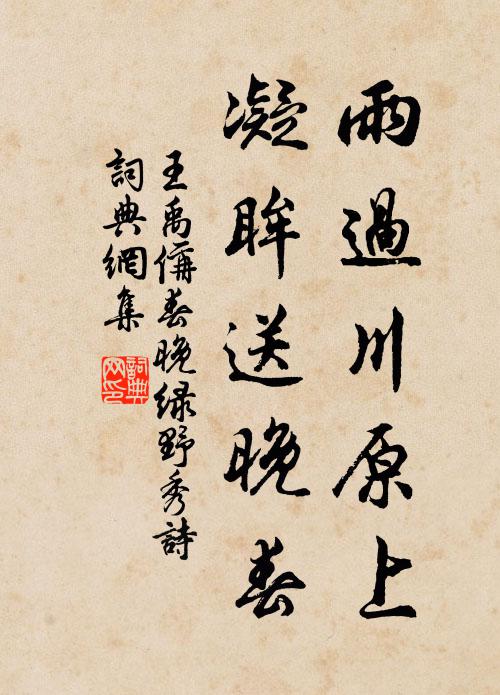 雨過川原上
凝眸送晚春
王禹偁春晚綠野秀詩
詞典網集
詞典
网印